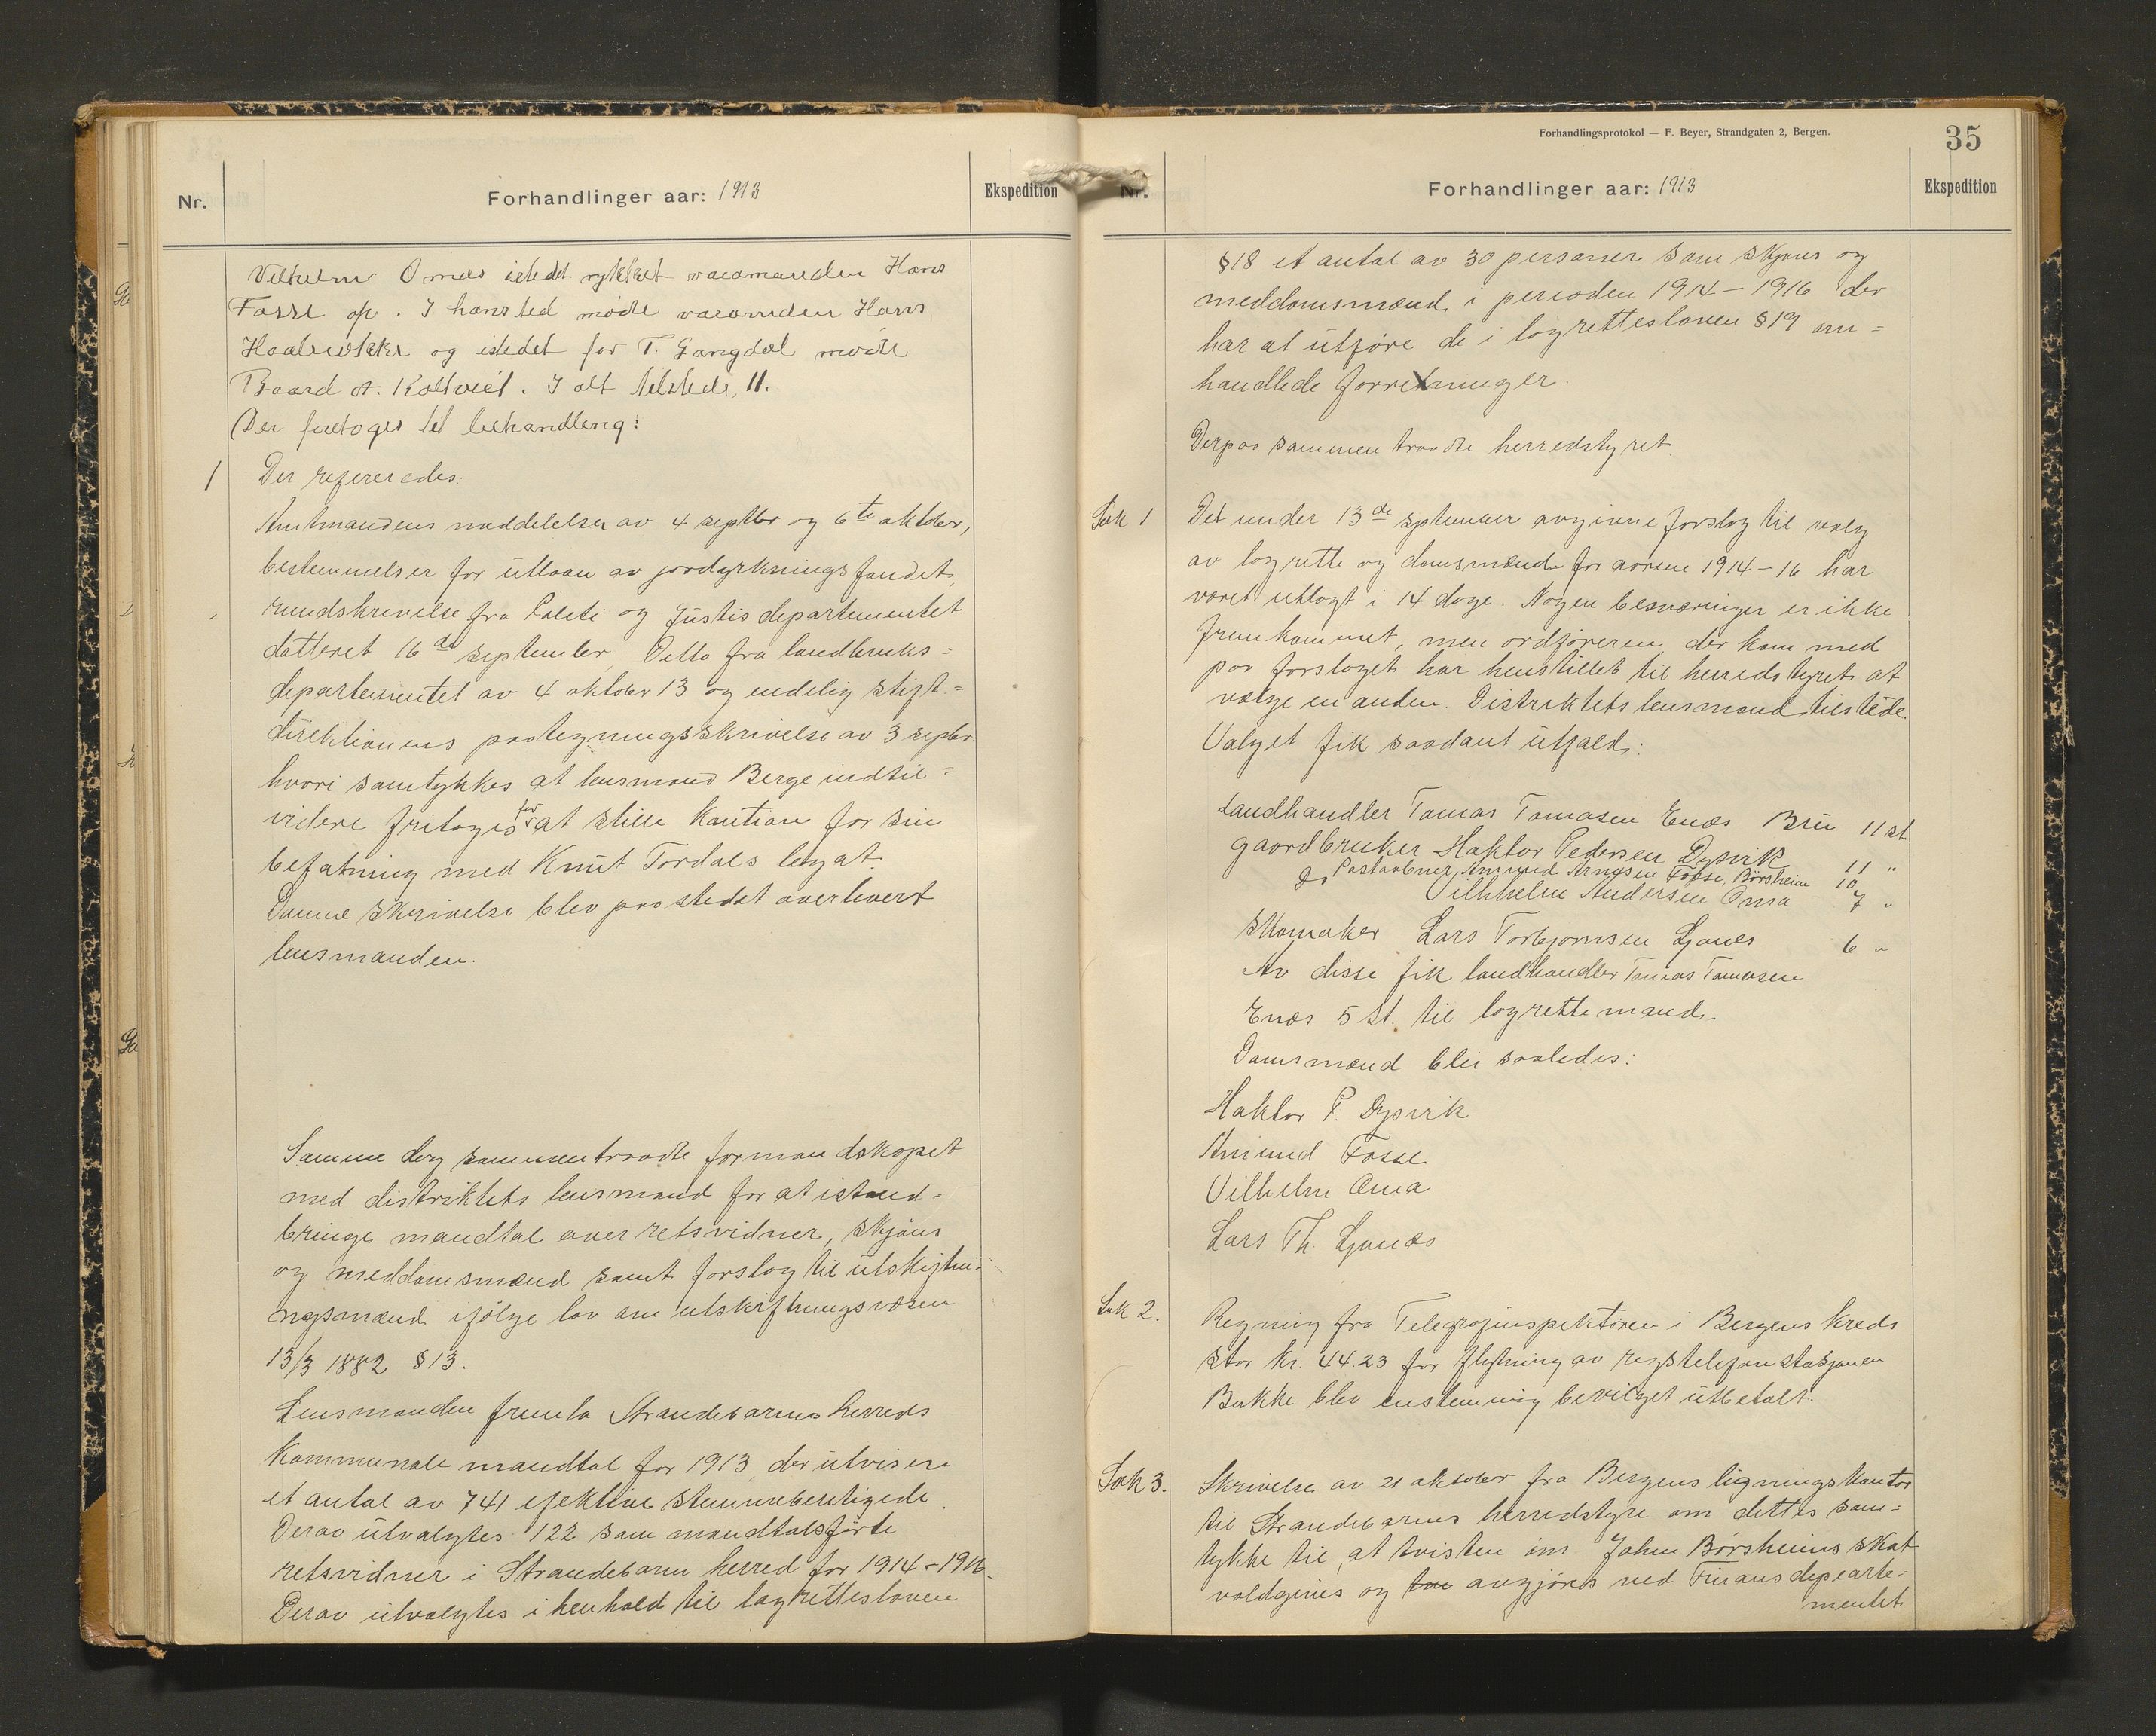 Nr.
Forhandlinger aar: 1913
Ekspedition
Vilhelm Omas istedet rykket varamanden Hans
Fosse op. I hans sted mødte varamden Hans
Haalrekke og istedet for T. Gangdal mødte
Baard A. Koltveit. I alt tilstede, 11.
Der foretoges til behandling:
1 Der refereredes:
Amtmandens meddelelser av 4 septbr og 6te oktober,
bestemmelser for utlaan av jordyrkningsfondet,
rundskrivelse fra Politi og Justisdepartementet
datteret 16de september, Ditto fra landbruks=
departementet av 4 oktober 13 og endelig stift=
direktionens paategningsskrivelse av 3 septbr.
hvori samtykkes at lensmand Berge indtil=
videre fritages for at stille kaution for sin
befatning med Knut Tordals legat.
Denne skrivelse blev paa stedet overlevert
lensmanden.
Samme dag sammentraadte formandskapet
med distriktets lensmand for at istand-
bringe mandtal over retsvidner, skjøns
og meddomsmænd samt forslag til utskiftni-
ngsmænd ifølge lov om utskiftningsvæsen
13/3 1882 § 13.
Lensmanden fremla Strandebarms herreds
kommunale mandtal for 1913 der utviser
et antal av 741 efektive stemmeberetigede.
Derav utvalgtes 122 som mandtalsførte
retsvidner i Strandebarm herred for 1914-1916.
Derav utvalgtes i henhold til lagretteslovens
Forhandlingsprotokol — F. Beyer, Strandgaten 2, Bergen.
35
Nr.
Forhandlinger aar: 1913
Ekspedition
§ 18 et antal av 30 personer som skjøns og
meddomsmænd i perioden 1914-1916 der
har at utføre de i lagrettesloven § 19 om=
handlede forretninger.
Derpaa sammentraadte herredstyret.
Sak 1 Det under 13de september avgivne forslag til valg
av lagrette og domsmænd for aarene 1914-16 har
været utlagt i 14 dage. Nogen besværinger er ikke
fremkommet, men ordføreren, der kom med
paa forslaget har henstillet til herredstyret at
vælge en anden. Distriktets lensmand tilstede.
Valget fik saadant utfald:
Landhandler Tomas Tomasen Enæs Bru 11 st
gaardbruker Haktor Pedersen Dysvik 11 "
Postaabner Amund Arnesen Fosse, Børsheim 10
Do Vilhhelm Andersen Oma 7 "
Skomaker Lars Torbjornsen Ljones 6 "
Av disse fik landhandler Tomas Tomasen
Enæs 5 st. til lagrettemand.
Domsmænd blir saaledes:
Haktor P. Dysvik
Amund Fosse
Vilhelm Oma
Lars Th. Ljonæs
Sak 2. Regning fra Telegrafinspektøren i Bergens kreds
stor kr. 44.23 for flytning av rigstelefonstasjonen
Bakke blev enstemmig bevilget utbetalt.
Sak 3. Skrivelse av 21 oktober fra Bergens ligningskontor
til Strandebarms herredstyre om dettes sam=
tykke til, at tvisten om John Børsheims skat
voldgives og avgjøres ved Finansdepearte=
mentet